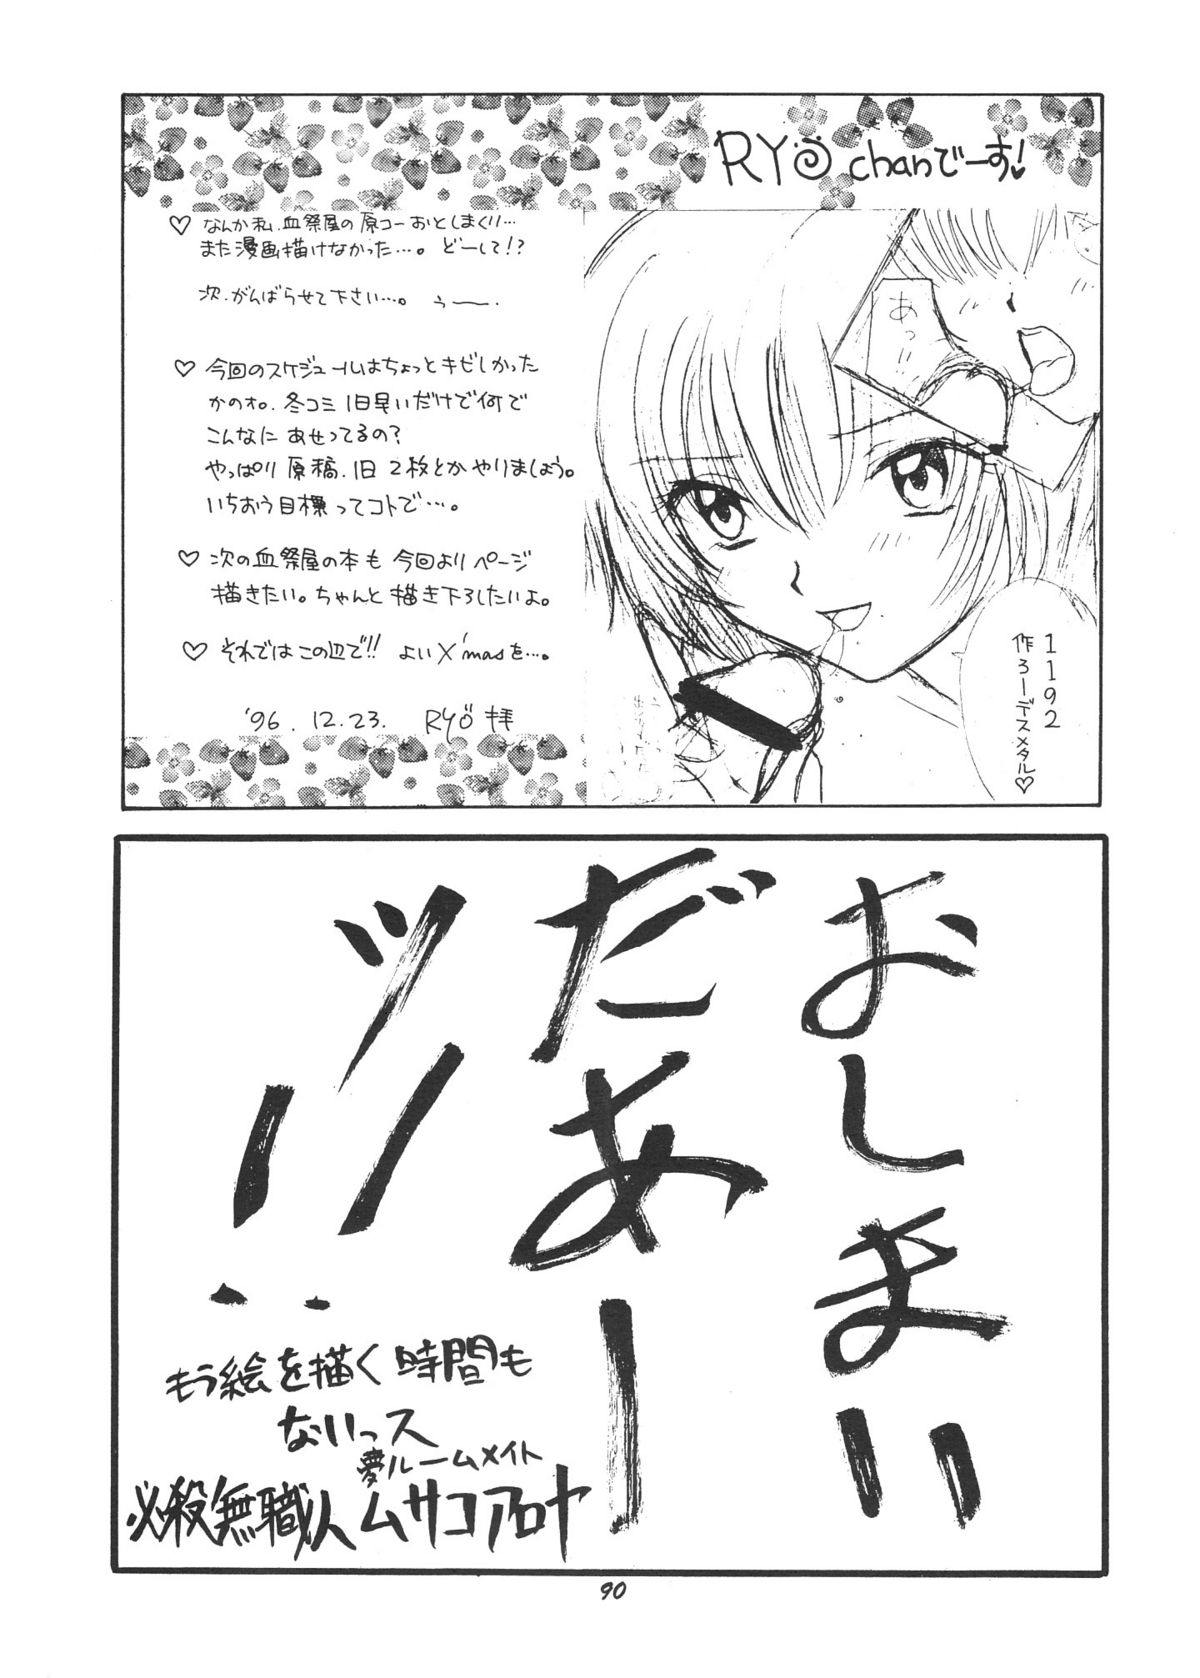 RYO chanでーす!
♡ なんか私、血祭屋の原コーおとしまくり…
また漫画描けなかった…。どーして!?
次、がんばらせて下さい…。うー。
♡ 今回のスケジュールはちょっとキビしかった
かのオ。冬コミ1日早いだけで何で
こんなに あせってるの?
やっぱり原稿、1日2枚とかやりましょう。
いちおう目標ってコトで…。
♡ 次の血祭屋の本も今回よりページ
描きたい。ちゃんと描き下ろしたいよ。
♡ それではこの辺で!! よいX'masを…。
'96.12.23. RYÖ 拝
あっ
1192
作ろーデスメタル♡
おしまい
だあー
ッ!!
もう絵を描く時間も
ないっス
夢ルームメイト
必殺無職人ムサコアロヤ
90